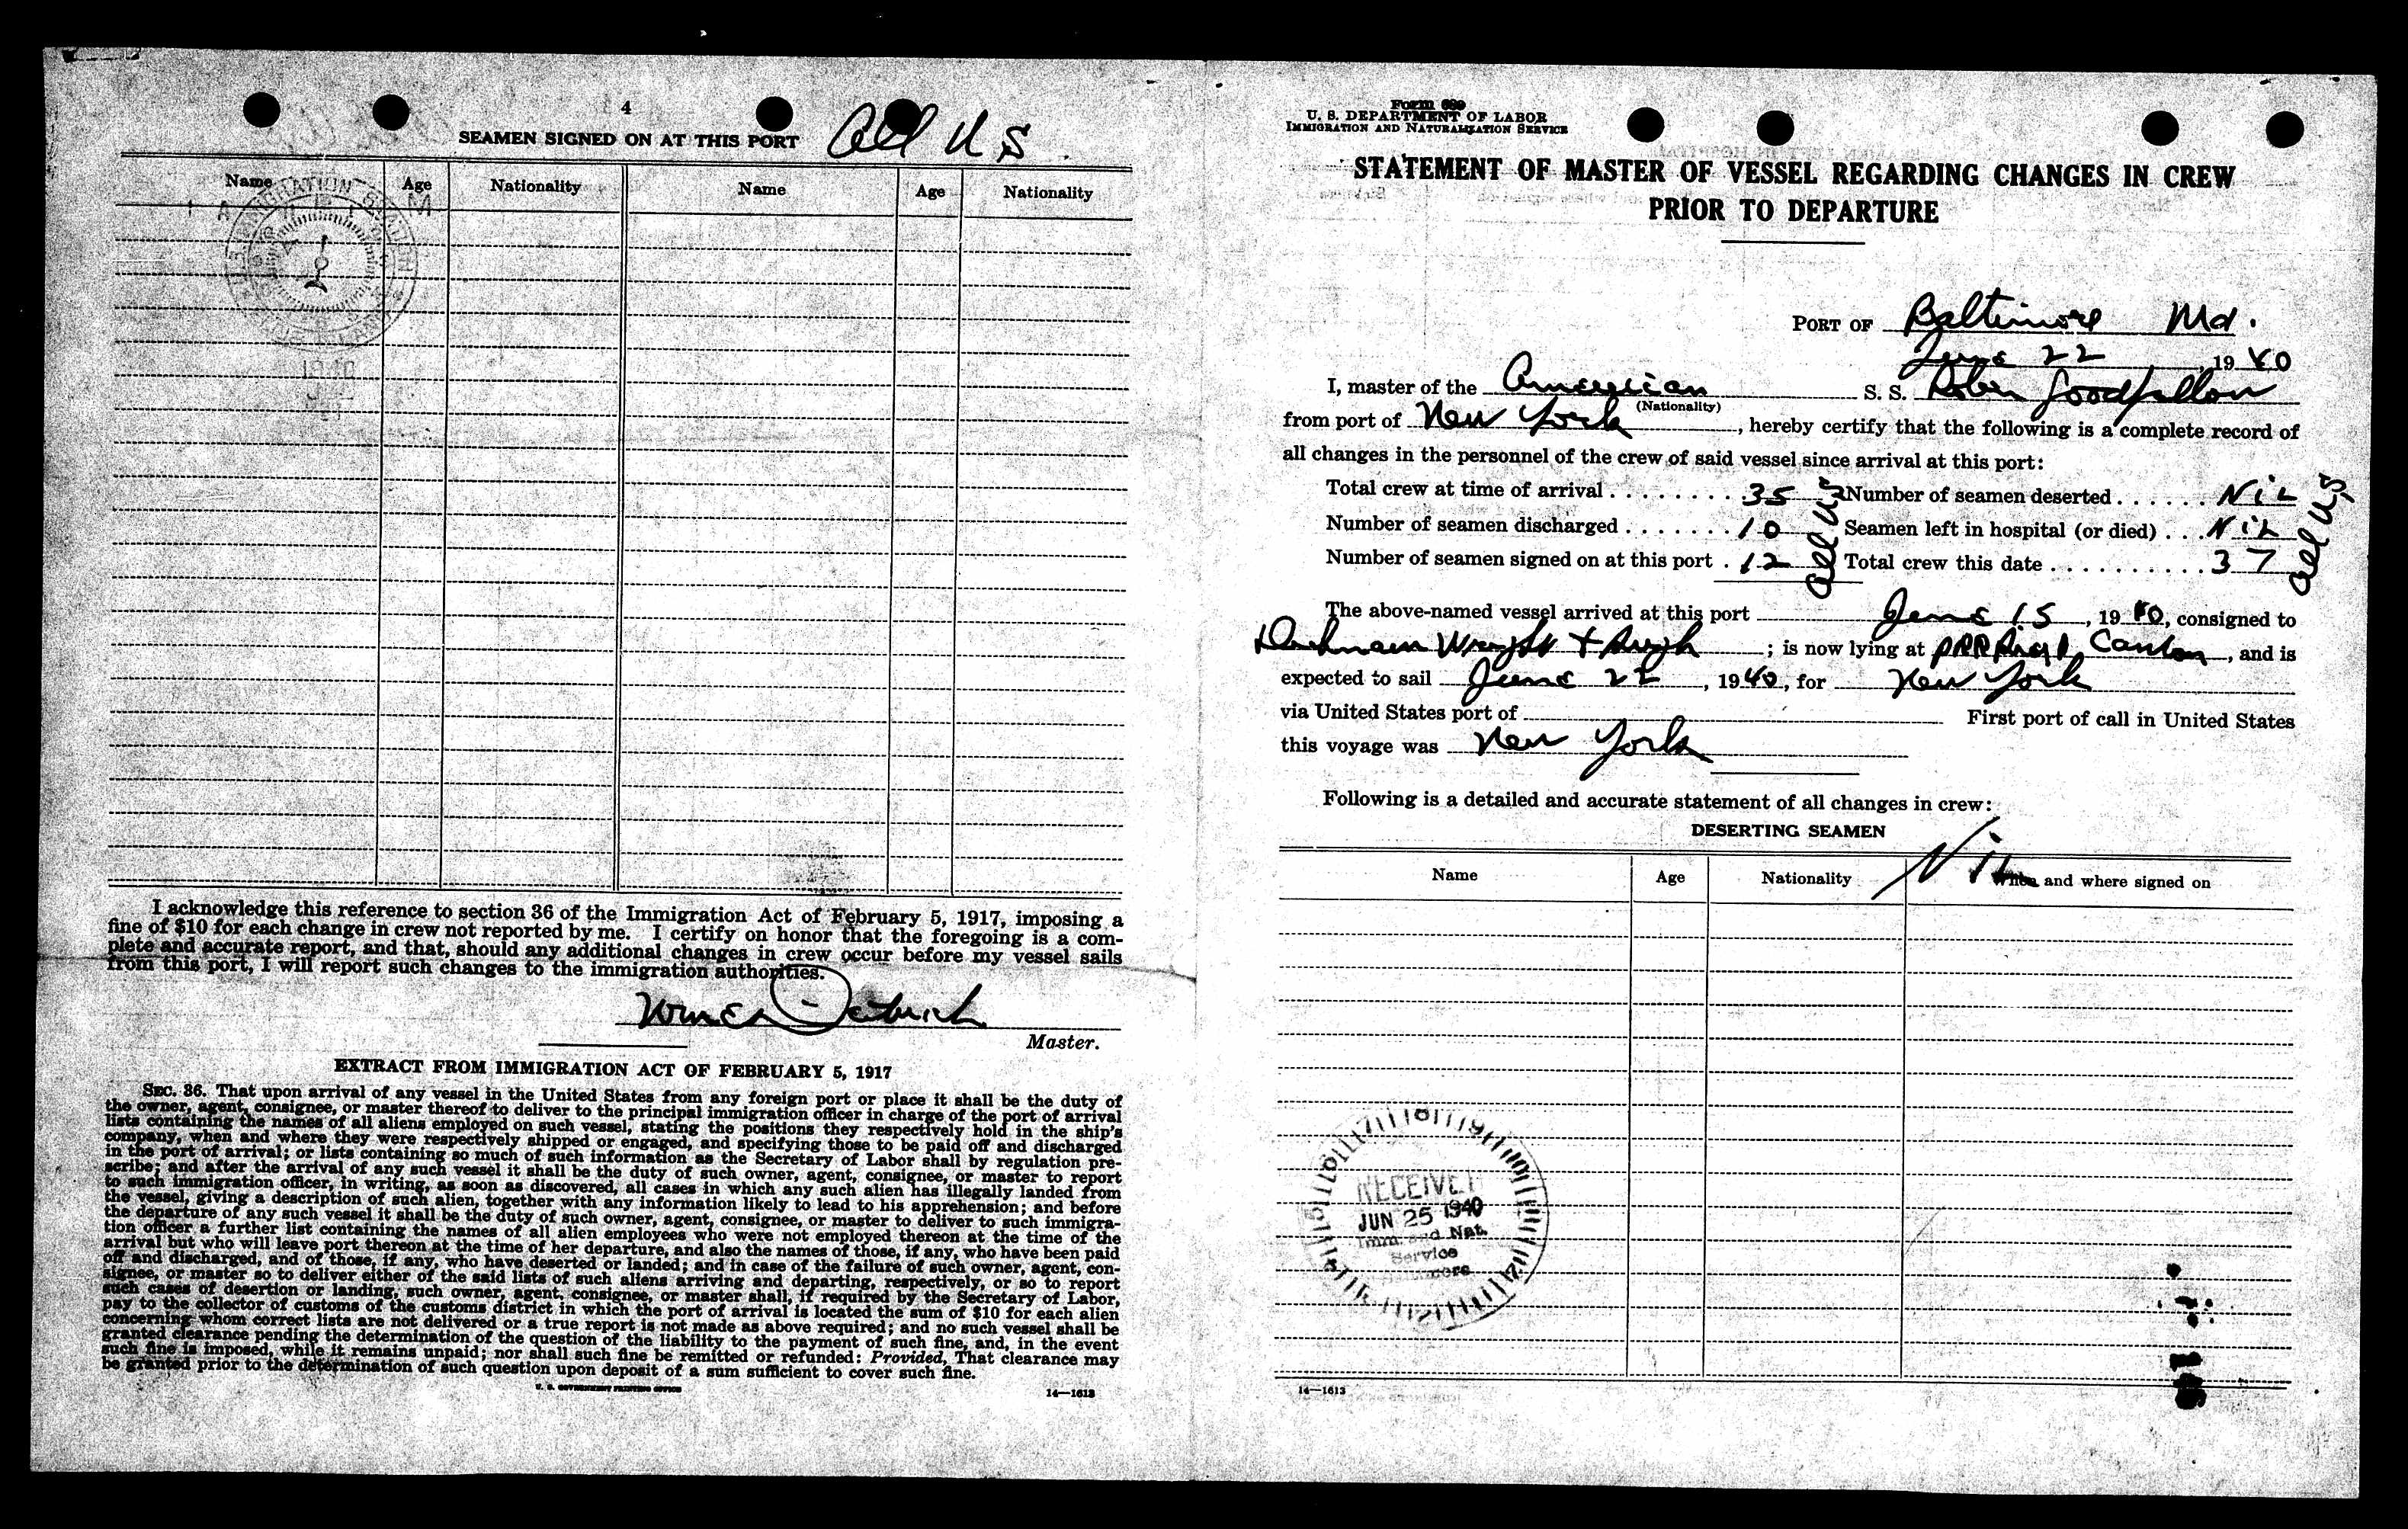 4
SEAMEN SIGNED ON AT THIS PORT All U S
Name Age Nationality Name Age Nationality
1940
I acknowledge this reference to section 36 of the Immigration Act of February 5, 1917, imposing a
fine of $10 for each change in crew not reported by me. I certify on honor that the foregoing is a com-
plete and accurate report, and that, should any additional changes in crew occur before my vessel sails
from this port, I will report such changes to the immigration authorities.
Master.
EXTRACT FROM IMMIGRATION ACT OF FEBRUARY 5, 1917
SEC. 36. That upon arrival of any vessel in the United States from any foreign port or place it shall be the duty of
the owner, agent, consignee, or master thereof to deliver to the principal immigration officer in charge of the port of arrival
lists containing the names of all aliens employed on such vessel, stating the positions they respectively hold in the ship's
company, when and where they were respectively shipped or engaged, and specifying those to be paid off and discharged
in the port of arrival; or lists containing so much of such information as the Secretary of Labor shall by regulation pre-
scribe; and after the arrival of any such vessel it shall be the duty of such owner, agent, consignee, or master to report
to such immigration officer, in writing, as soon as discovered, all cases in which any such alien has illegally landed from
the vessel, giving a description of such alien, together with any information likely to lead to his apprehension; and before
the departure of any such vessel it shall be the duty of such owner, agent, consignee, or master to deliver to such immigra-
tion officer a further list containing the names of all alien employees who were not employed thereon at the time of the
arrival but who will leave port thereon at the time of her departure, and also the names of those, if any, who have been paid
off and discharged, and of those, if any, who have deserted or landed; and in case of the failure of such owner, agent, con-
signee, or master so to deliver either of the said lists of such aliens arriving and departing, respectively, or so to report
such cases of desertion or landing, such owner, agent, consignee, or master shall, if required by the Secretary of Labor,
pay to the collector of customs of the customs district in which the port of arrival is located the sum of $10 for each alien
concerning whom correct lists are not delivered or a true report is not made as above required; and no such vessel shall be
granted clearance pending the determination of the question of the liability to the payment of such fine, and, in the event
such fine is imposed, while it remains unpaid; nor shall such fine be remitted or refunded: Provided, That clearance may
be granted prior to the determination of such question upon deposit of a sum sufficient to cover such fine.
U. S. GOVERNMENT PRINTING OFFICE 14—1613
Form 689
U. S. DEPARTMENT OF LABOR
IMMIGRATION AND NATURALIZATION SERVICE
STATEMENT OF MASTER OF VESSEL REGARDING CHANGES IN CREW
PRIOR TO DEPARTURE
PORT OF Baltimore Md.
June 22, 1940
I, master of the American S. S. Robin Goodfellow
(Nationality)
from port of New York, hereby certify that the following is a complete record of
all changes in the personnel of the crew of said vessel since arrival at this port:
Total crew at time of arrival 35 Number of seamen deserted NiL
Number of seamen discharged 10 Seamen left in hospital (or died) NiL
Number of seamen signed on at this port 12 Total crew this date 37
All U.S
All U.S
The above-named vessel arrived at this port June 15, 1940, consigned to
Wright +; is now lying at PRR Canton, and is
expected to sail June 22, 1940, for New York
via United States port of First port of call in United States
this voyage was New York
Following is a detailed and accurate statement of all changes in crew:
DESERTING SEAMEN
NiL
Name Age Nationality When and where signed on
RECEIVED
JUN 25 1940
Imm. and Nat.
Service
14—1613